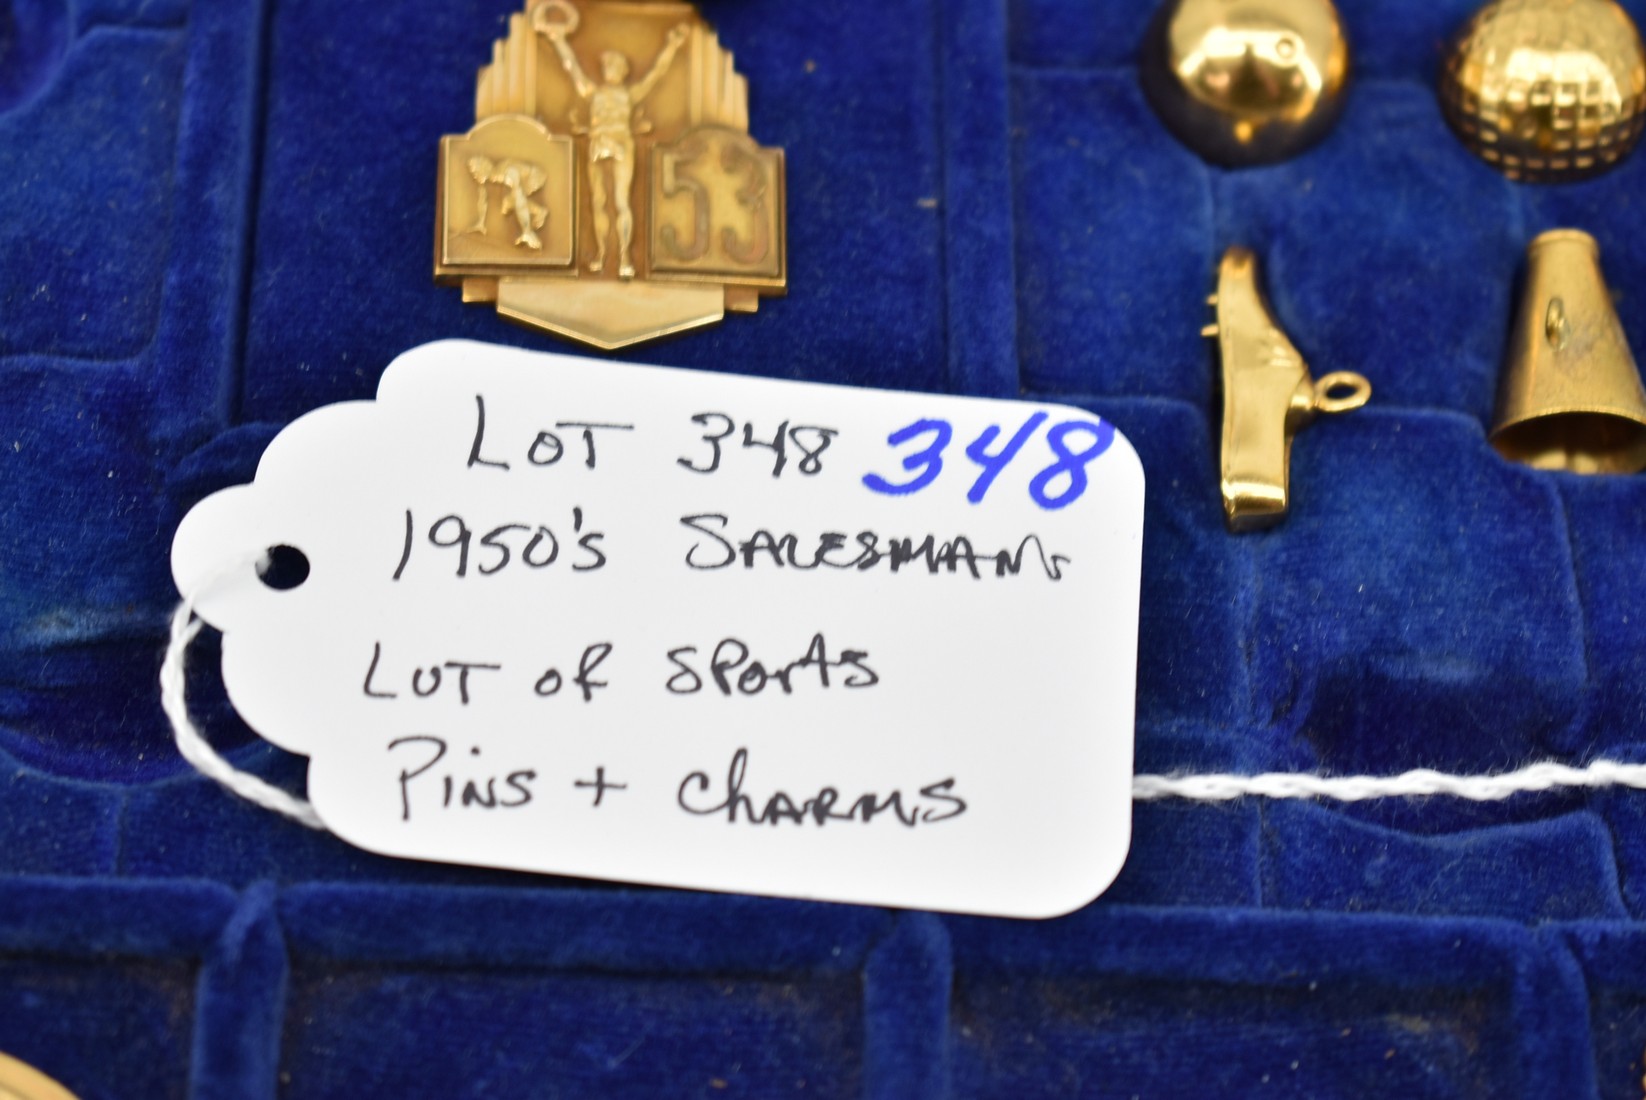 53
LOT 348 348
1950's SALESMANS
LOT OF SPORTS
PINS + CHARMS